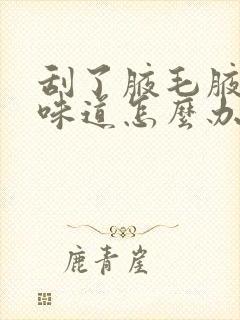 刮了腋毛腋
味道怎麼办
鹿青崖